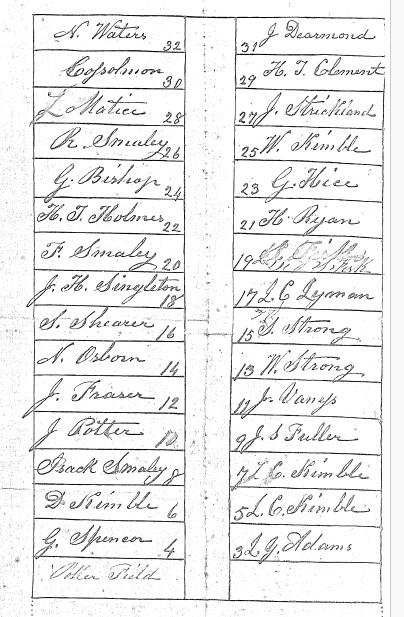 N. Waters 32
31 J Dearmond
30
29 H. T. Clement
L Matice 28
27 J. Strickland
R. Smaley 26
25 W. Kimble
G. Bishop 24
23 G. Hice
H. T. Holmes 22
21 H. Ryan
F. Smaley 20
19
J. H. Singleton 18
17 L. C. Lyman
S. Shearer 16
15 S. Strong
N. Osborn 14
13 W. Strong
J. Fraser 12
11 J. Vanys
J Potter 10
9 J. S Fuller
Isack Smaley 8
7 L C. Kimble
D Kimble 6
5 L. C. Kimble
G. Spencer 4
3 L. J. Adams
Field